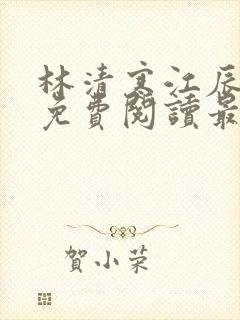 林清寒江辰
免費閱讀最
賀小荣